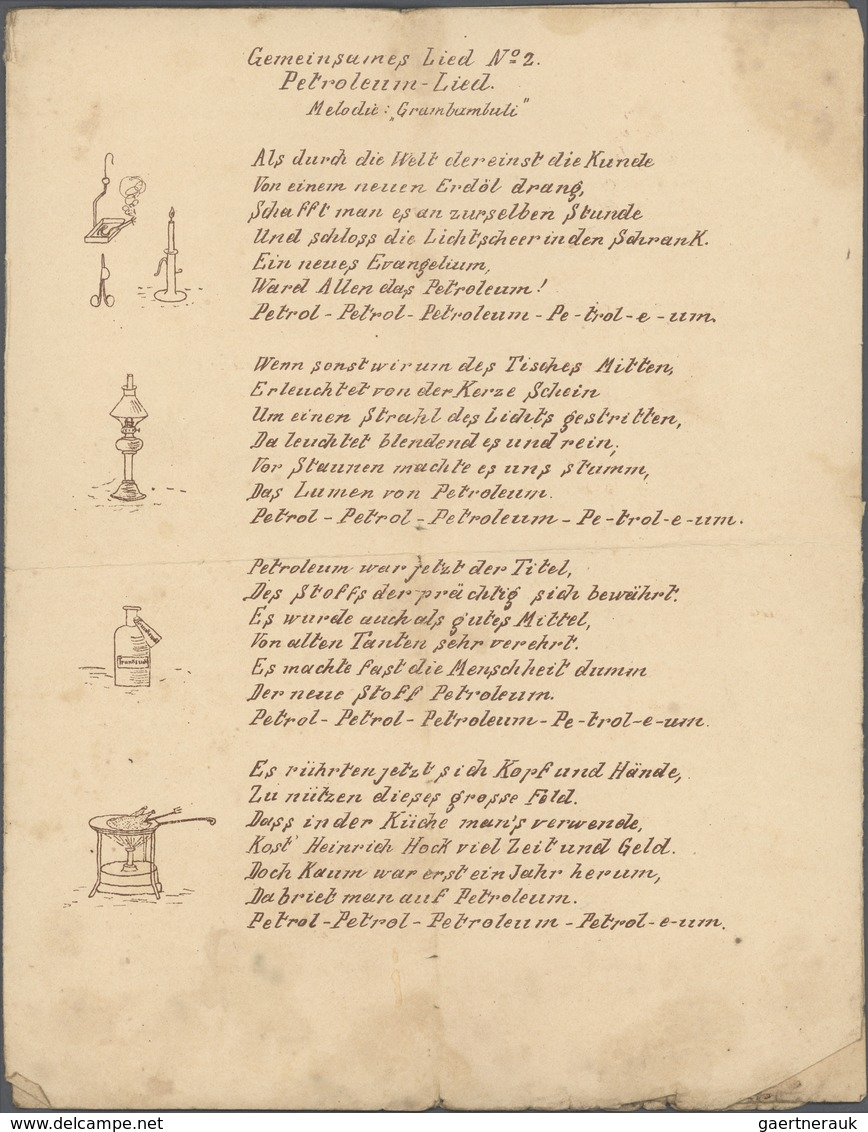 Gemeinsames Lied Nº 2.
Petroleum-Lied.
Melodie: „Grambambuli"
Als durch die Welt dereinst die Kunde
Von einem neuen Erdöl drang,
Schafft man es an zurselben Stunde
Und schloss die Lichtscheer in den Schrank.
Ein neues Evangelium,
Ward Allen das Petroleum!
Petrol - Petrol - Petroleum - Pe-trol-e-um.
Wenn sonst wir um des Tisches Mitten,
Erleuchtet von der Kerze Schein
Um einen Strahl des Lichts gestritten,
Da leuchtet blendend es und rein;
Vor Staunen machte es uns stumm,
Das Lumen von Petroleum.
Petrol - Petrol - Petroleum - Pe-trol-e-um.
Petroleum war jetzt der Titel,
Des Stoffs der prächtig sich bewährt.
Es wurde auch als gutes Mittel,
Von alten Tanten sehr verehrt.
Es machte fast die Menschheit dumm
Der neue Stoff Petroleum.
Petrol - Petrol - Petroleum - Pe-trol-e-um.
Es rührten jetzt sich Kopf und Hände,
Zu nützen dieses grosse Feld.
Dass in der Küche man's verwende,
Kost' Heinrich Hock viel Zeit und Geld.
Doch Kaum war erst ein Jahr herum,
Da briet man auf Petroleum.
Petrol - Petrol - Petroleum - Petrol-e-um.
delcampe.net
gaertnerauk